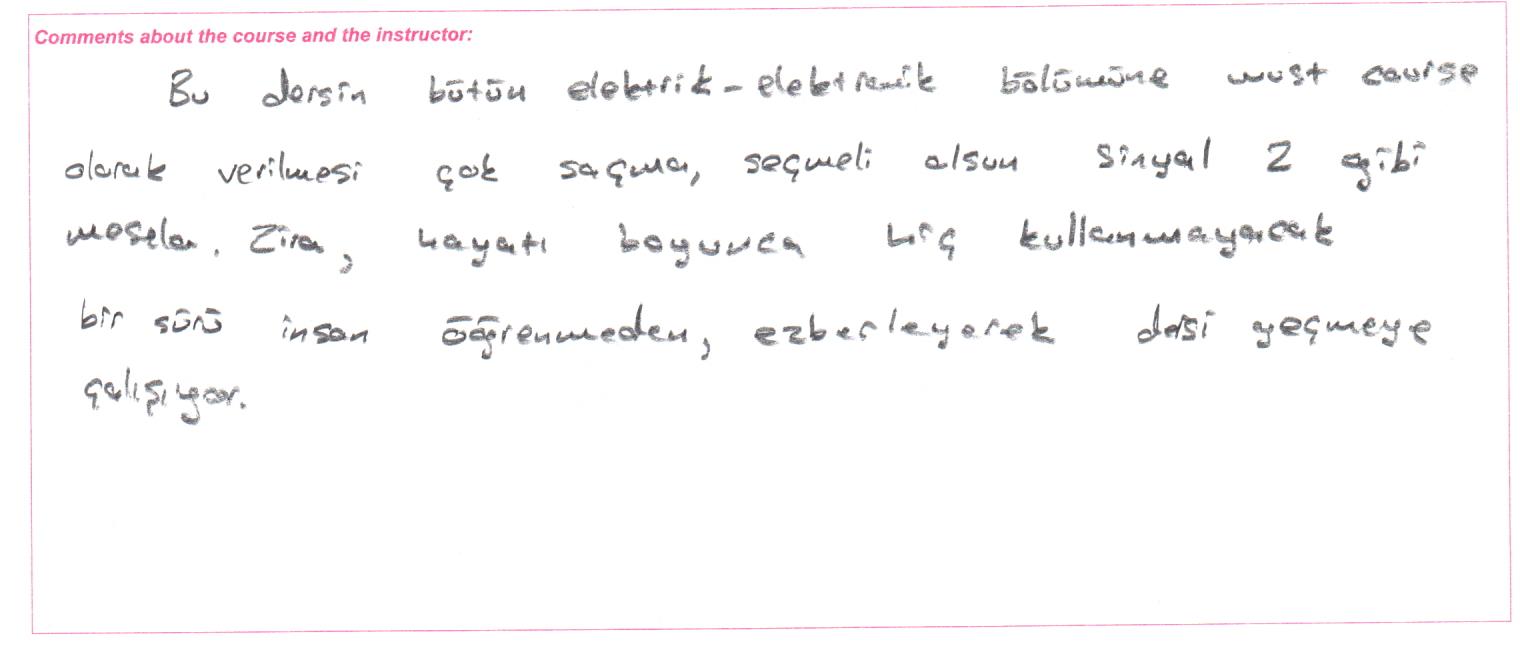 Comments about the course and the instructor:
Bu dersin bütün elektrik-elektronik bölümüne must course
olarak verilmesi çok saçma, seçmeli olsun Sinyal 2 gibi
mesela. Zira, hayatı boyunca hiç kullanmayacak
bir sürü insan öğrenmeden, ezberleyerek dersi geçmeye
çalışıyor.